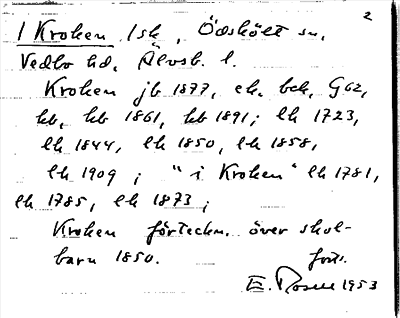 2
1 Kroken 1sk, Ödskölt sn,
Vedbo hd, Älvsb. l.
Kroken jb 1877, ek. bch, G62,
hb, hb 1861, hb 1891; lh 1723,
lh 1844, lh 1850, lh 1858,
lh 1909; "i Kroken" lh 1781,
lh 1785, lh 1873;
Kroken förteckn. över skol-
barn 1850. forts.
E. Rosell 1953